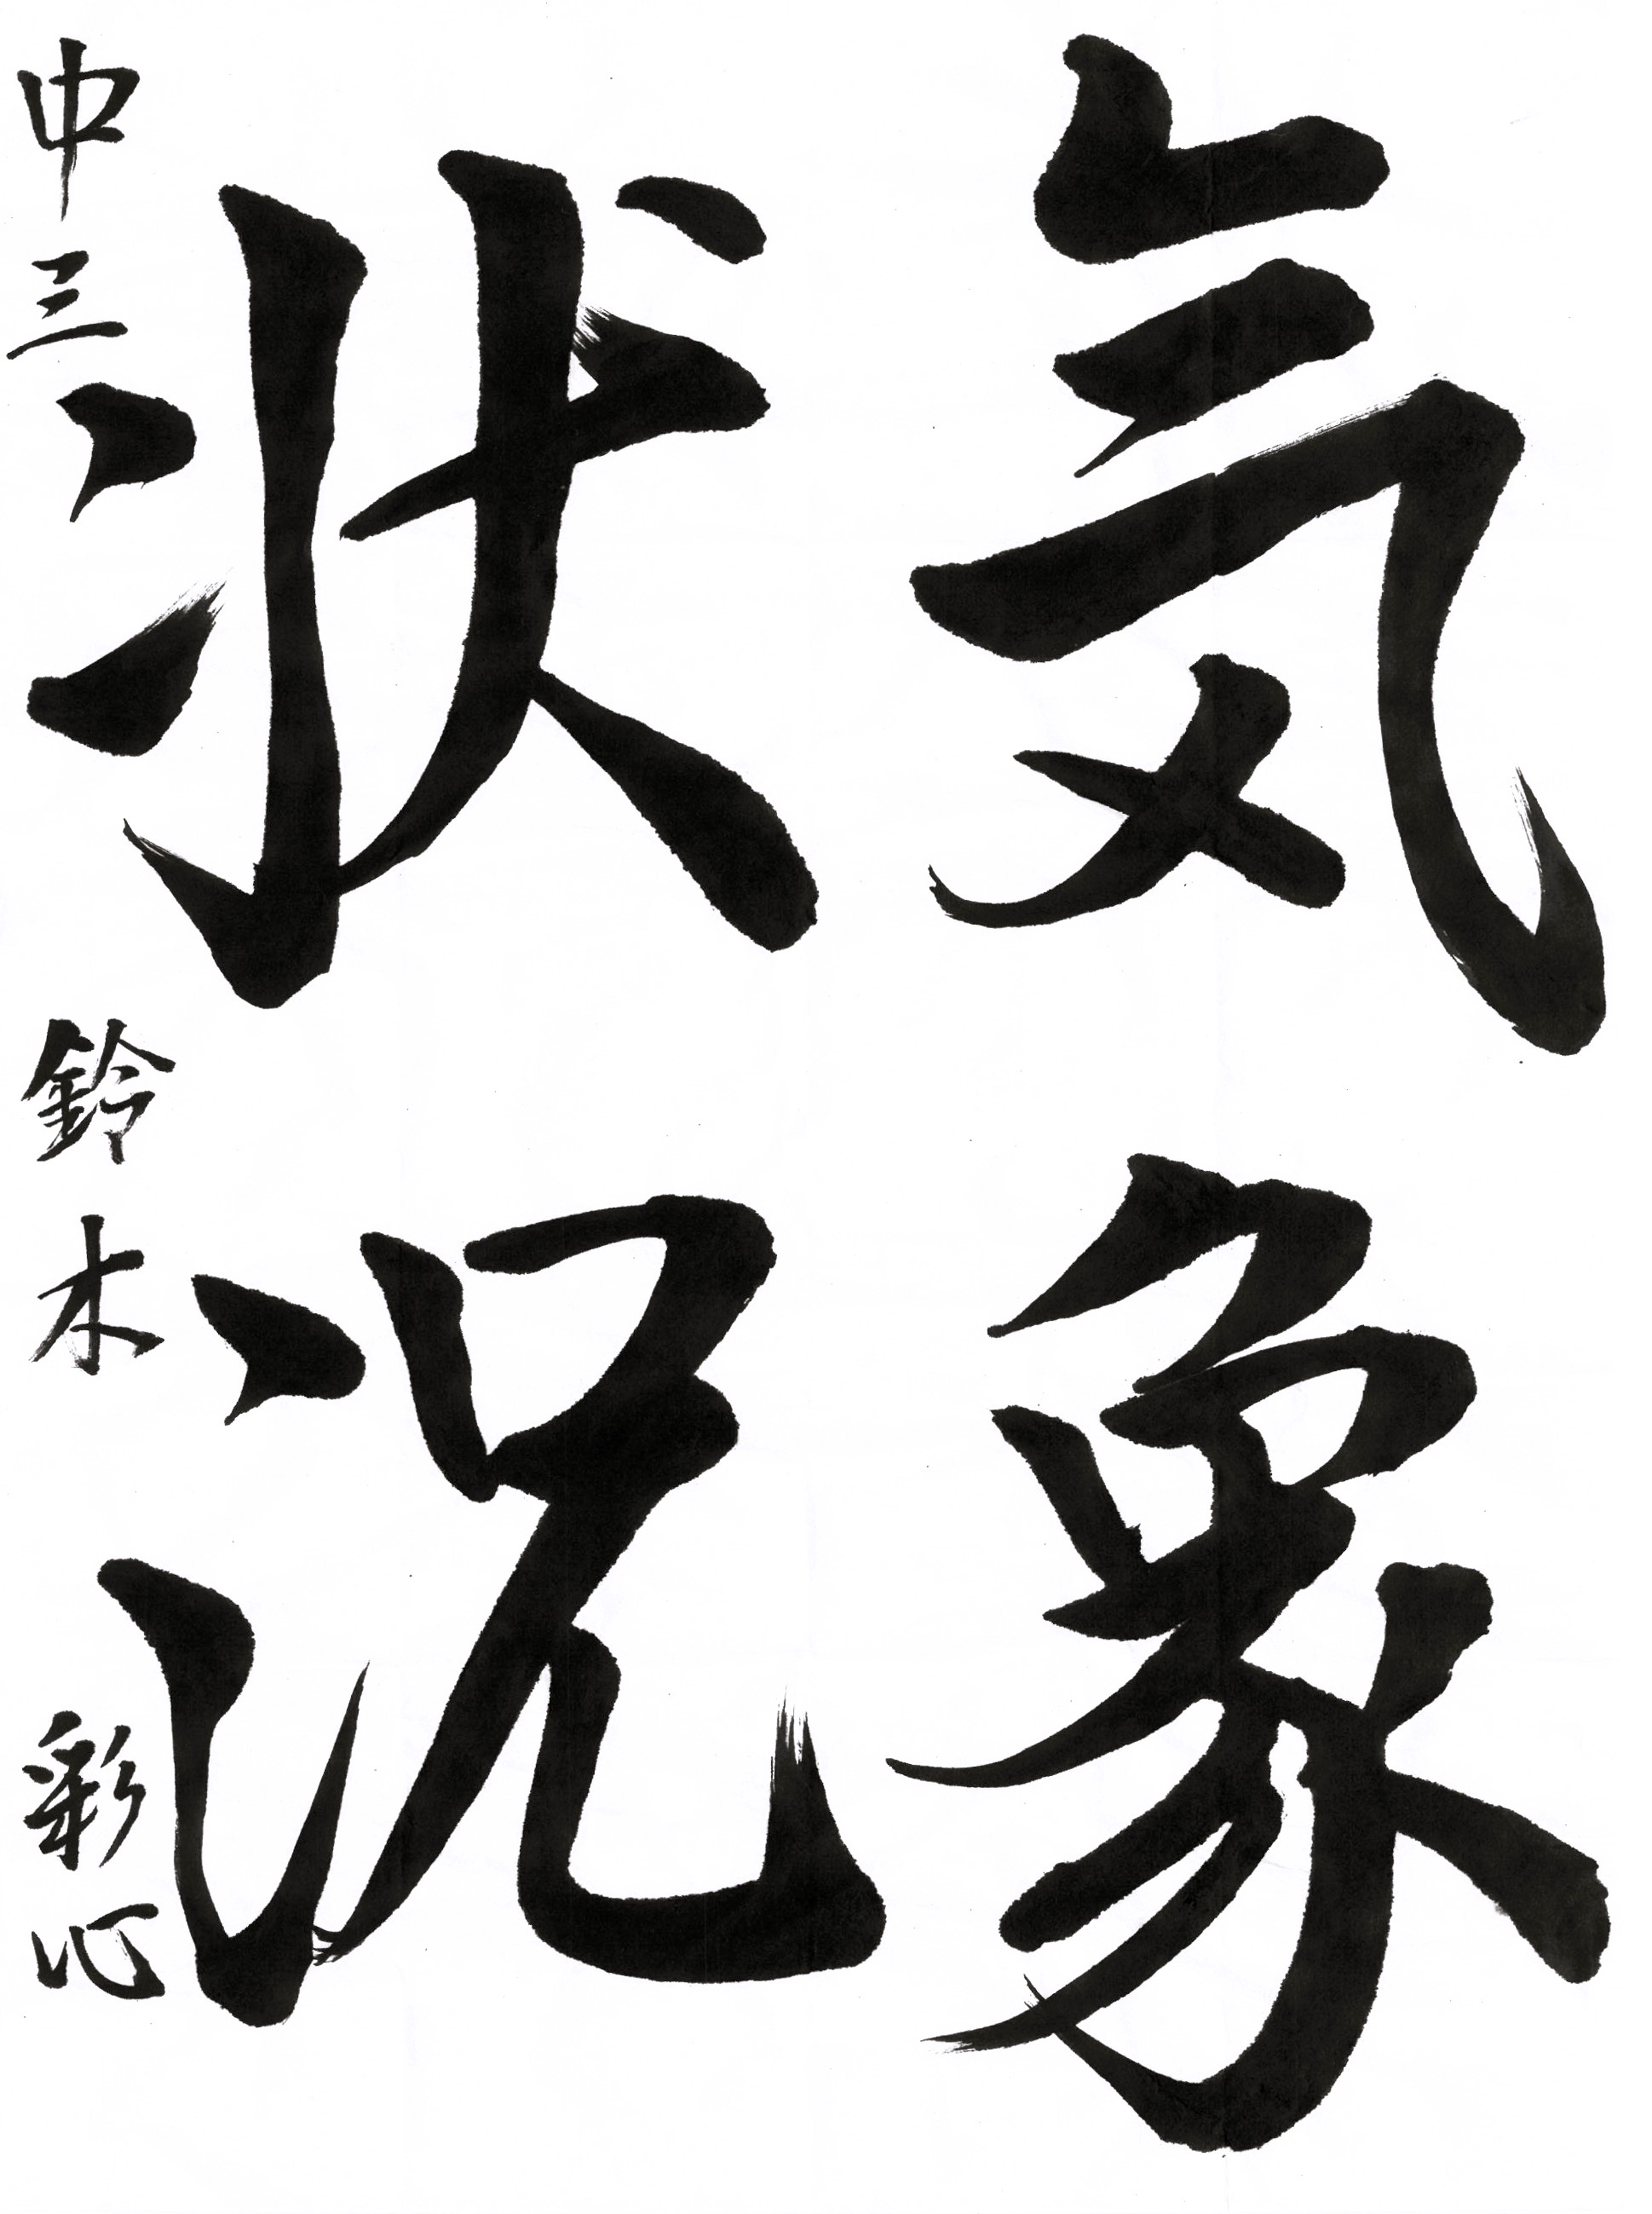 気象
状況
中三 鈴木 彩心